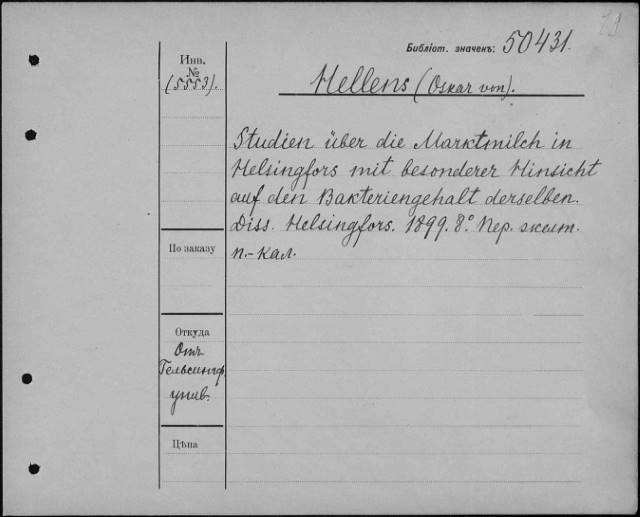 Библіот. значекъ: 50431.
Инв.
№
(5553).
Hellens (Oskar von).
Studien über die Marktmilch in
Helsingfors mit besonderer Hinsicht
auf den Bakteriengehalt derselben.
Diss. Helsingfors. 1899. 8° Пер. желт.
п.-кал.
По заказу
Откуда
Отъ
Гельсингф.
унив.
Цѣна